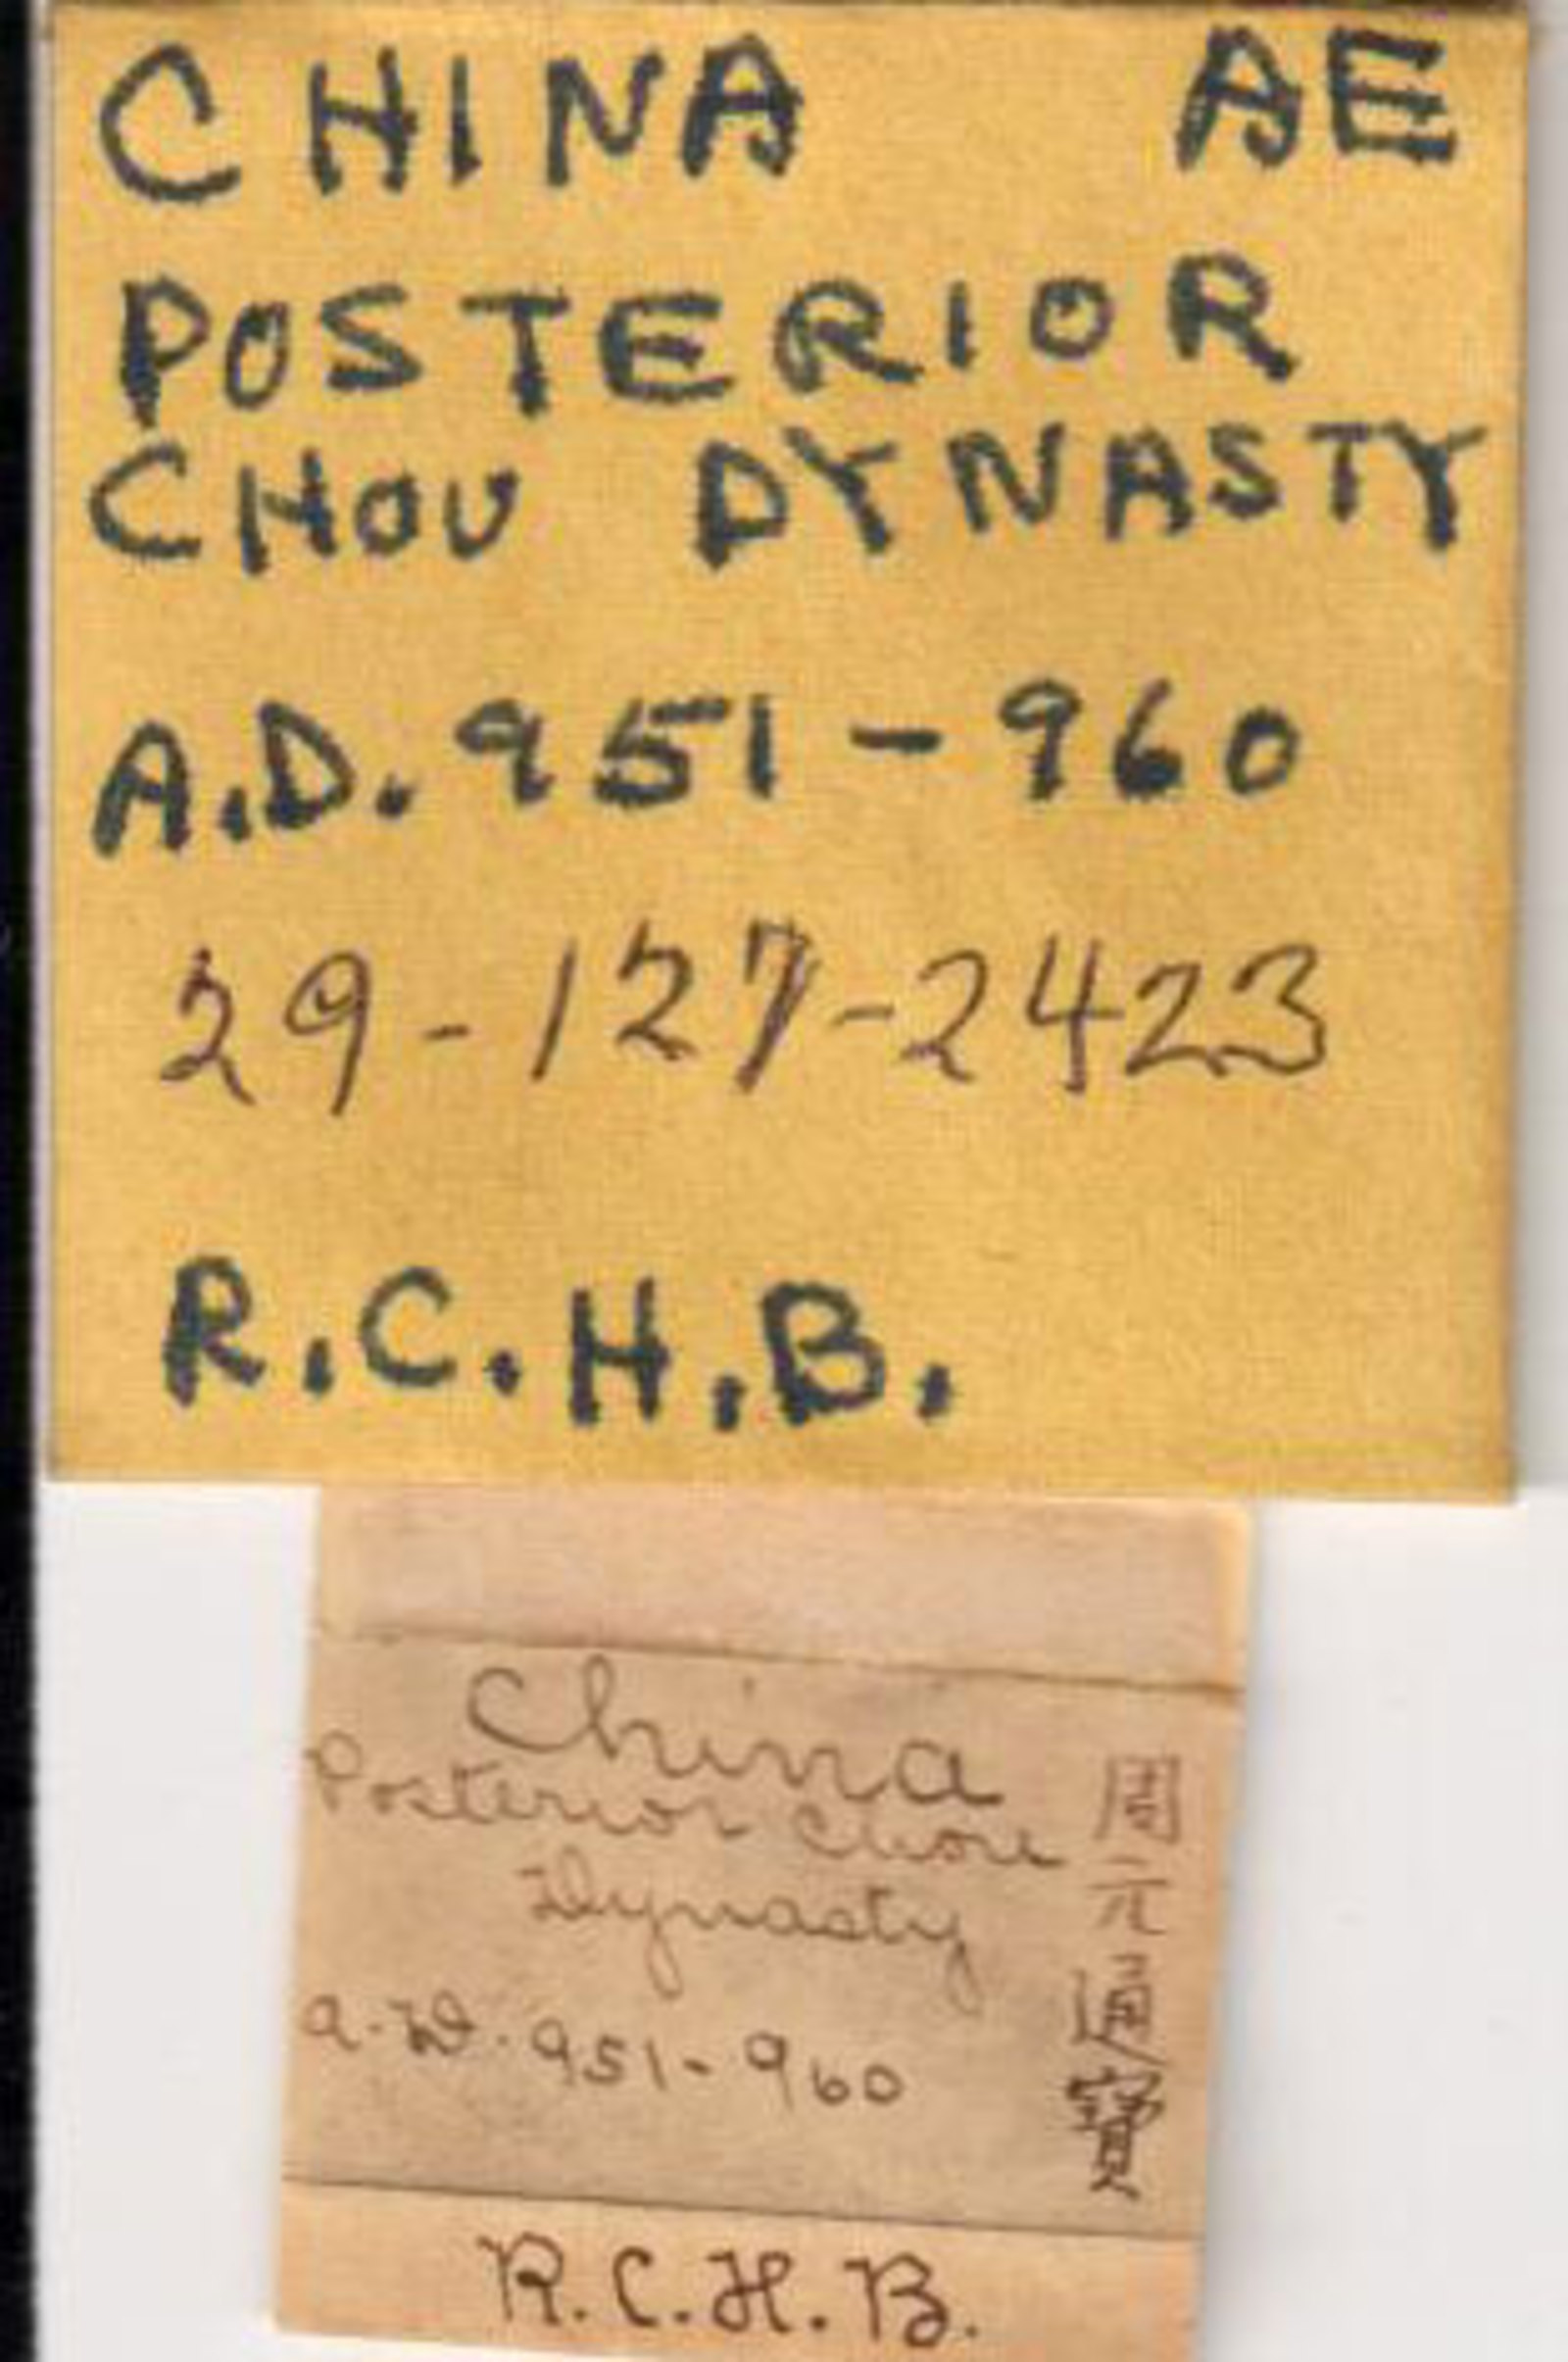 CHINA AE
POSTERIOR
CHOU DYNASTY
A.D. 951-960
29-127-2423
R.C.H.B.
China
Posterior Chou
Dynasty
A.D. 951-960
周元通寶
R.C.H.B.